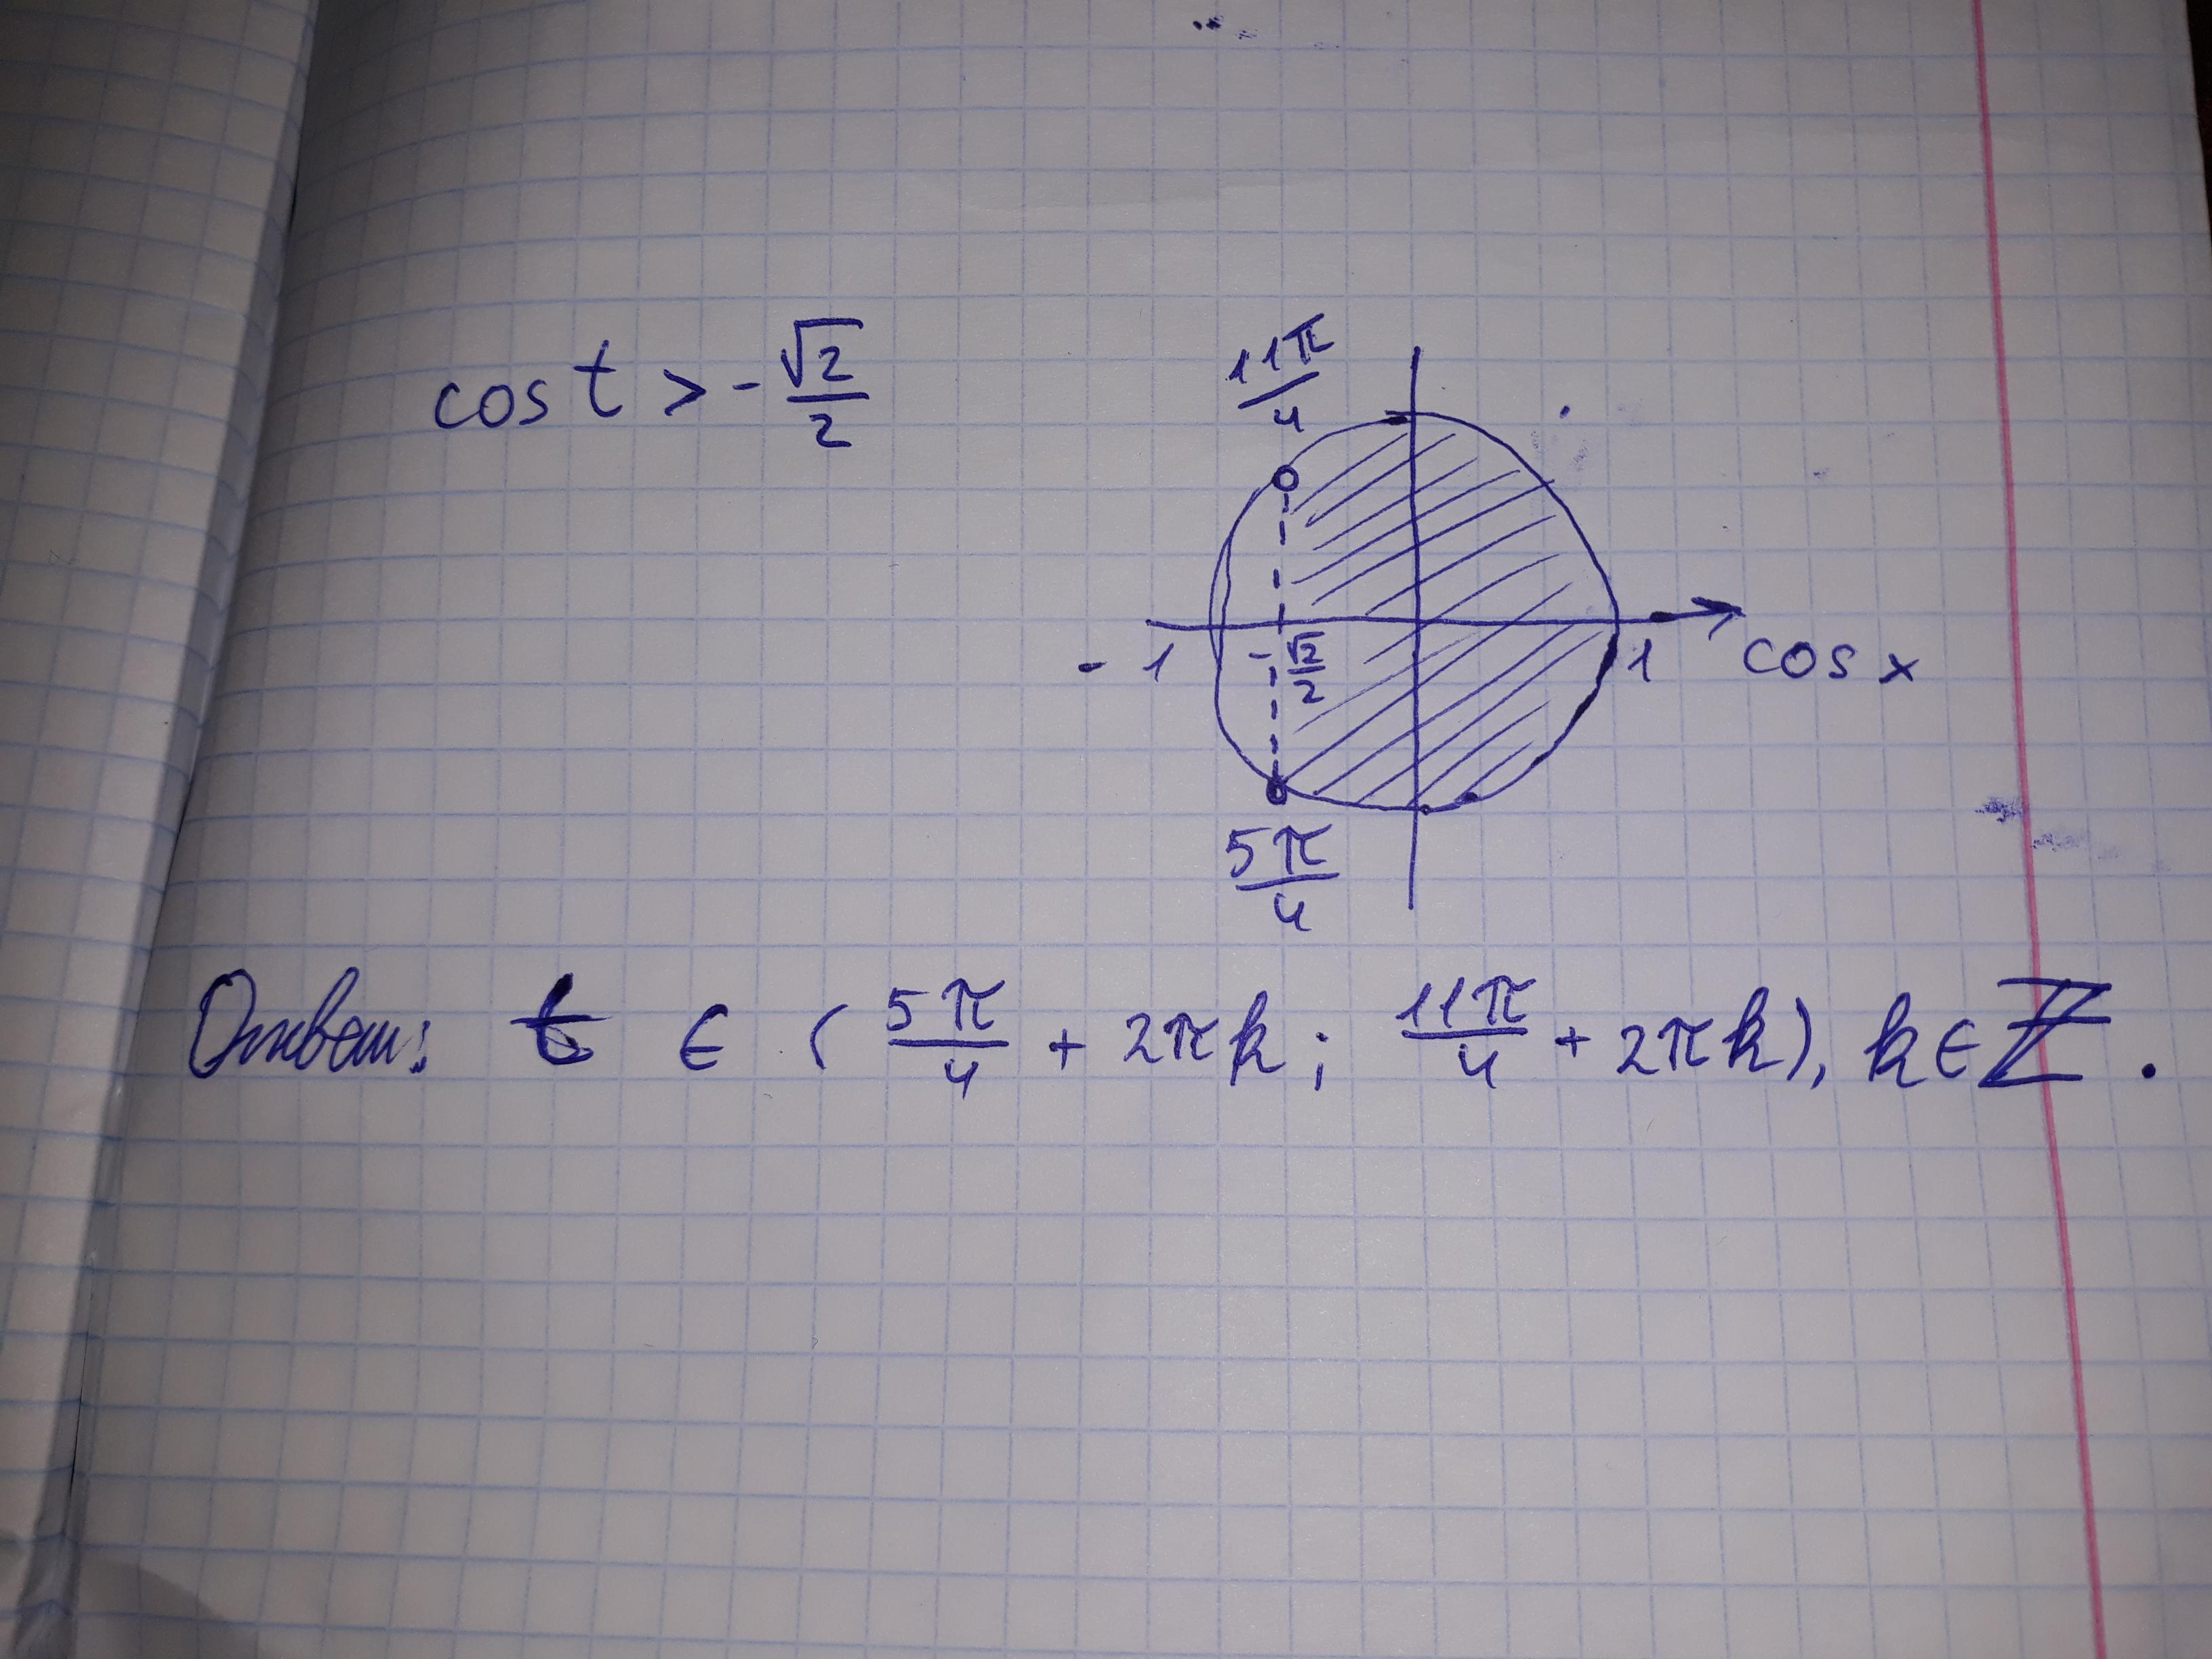 cos t > -√2/2
11π/4
-1 -√2/2 1 cos x
5π/4
Ответ: t ∈ (5π/4 + 2πk; 11π/4 + 2πk), k ∈ Z.